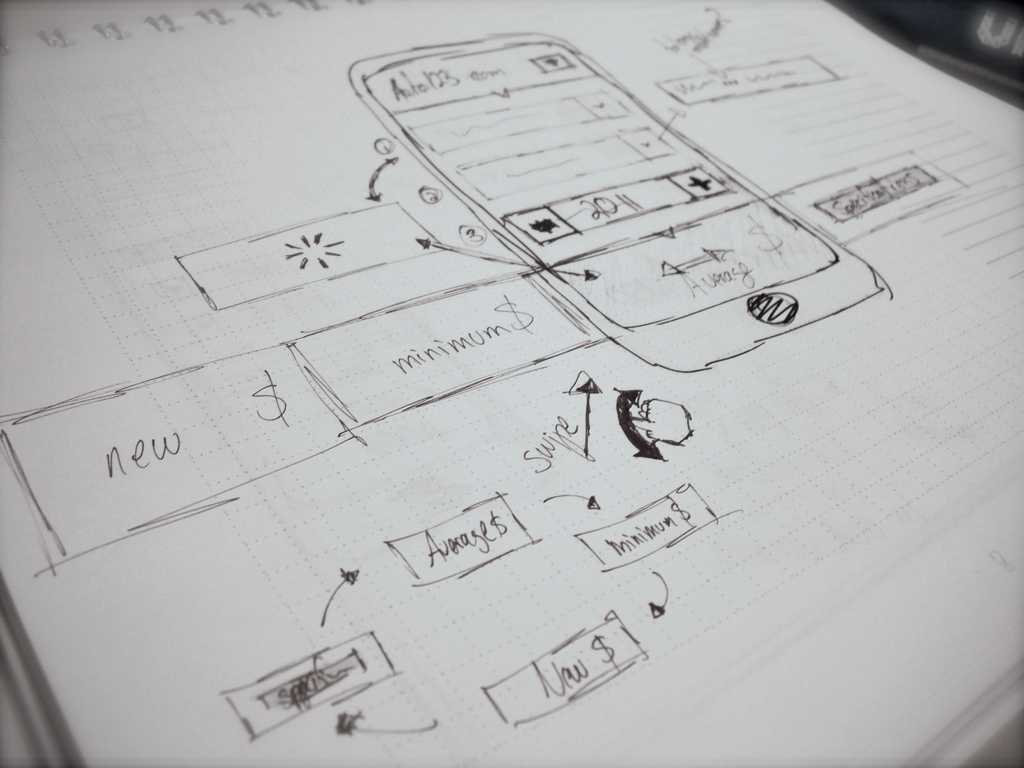 Auto123.com
1
2
3
2011
$
Average
Specifications
minimum $
new $
swipe
Average $
minimum $
New $